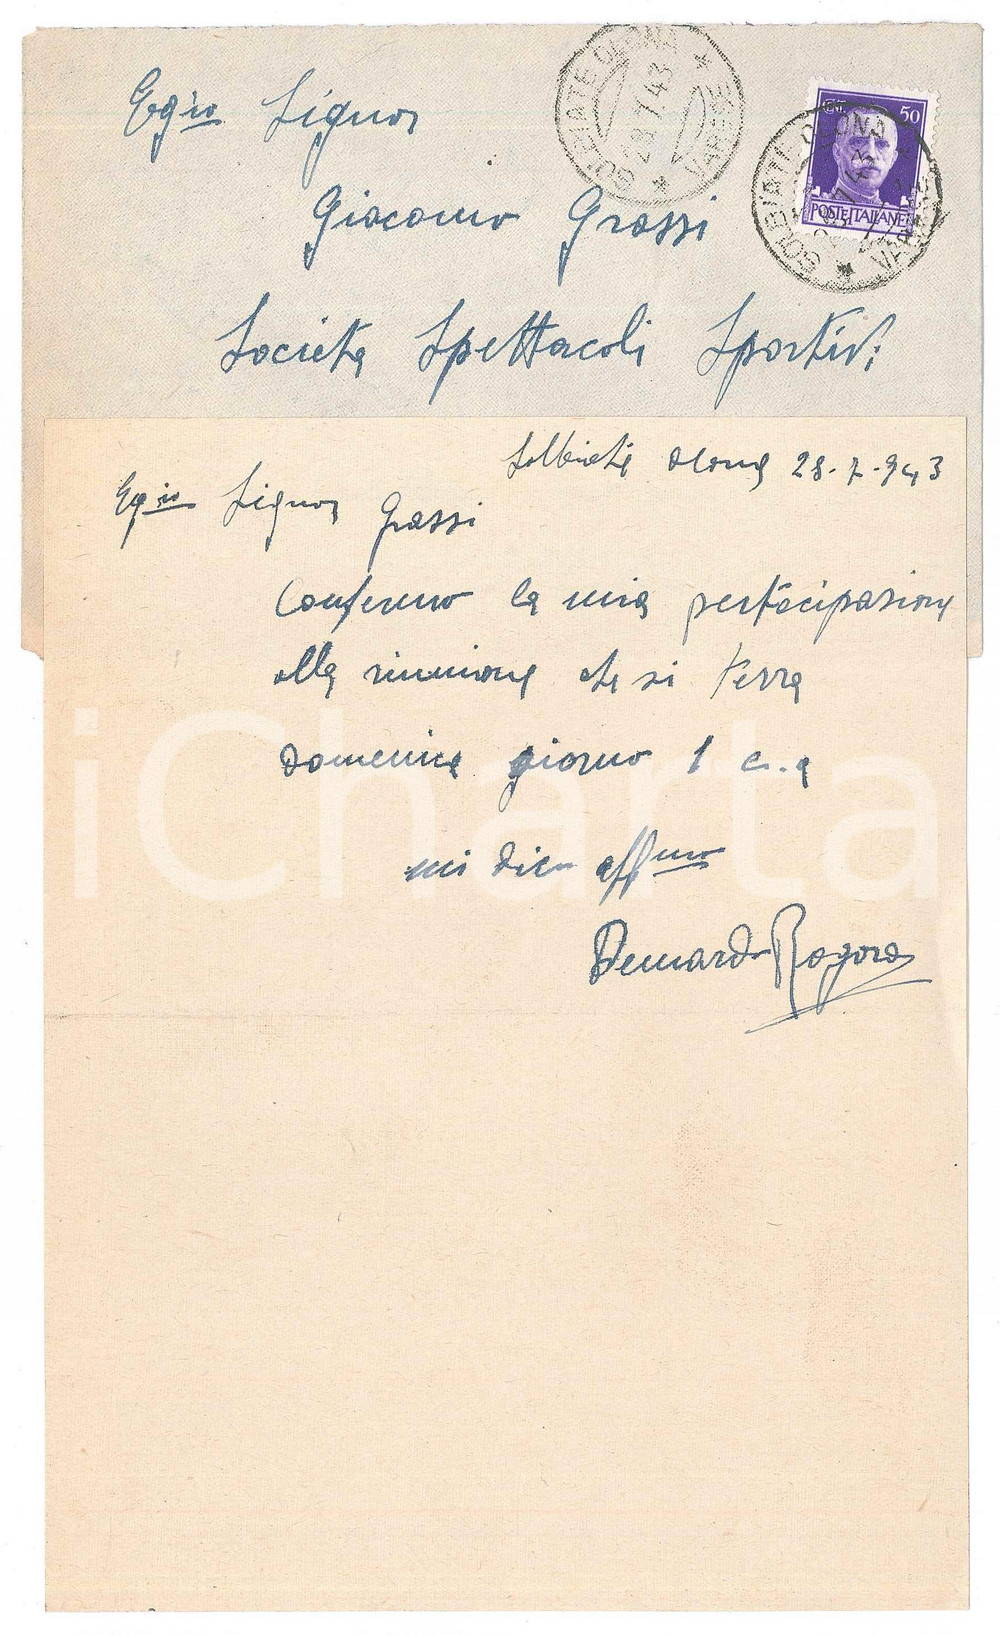 Egio Signor
Giacomo Grassi
Società Spettacoli Sportivi
SOLBIATE OLONA * VARESE *
28.7.43
CENT. 50
POSTE ITALIANE
SOLBIATE OLONA
VARESE *
Solbiate Olona 28-7-943
Egio Signor Grassi
Confermo la mia partecipazione
alla riunione che si terra
domenica giorno 1 c.a
mi dico affmo
Bernardo Rogora
iCharta